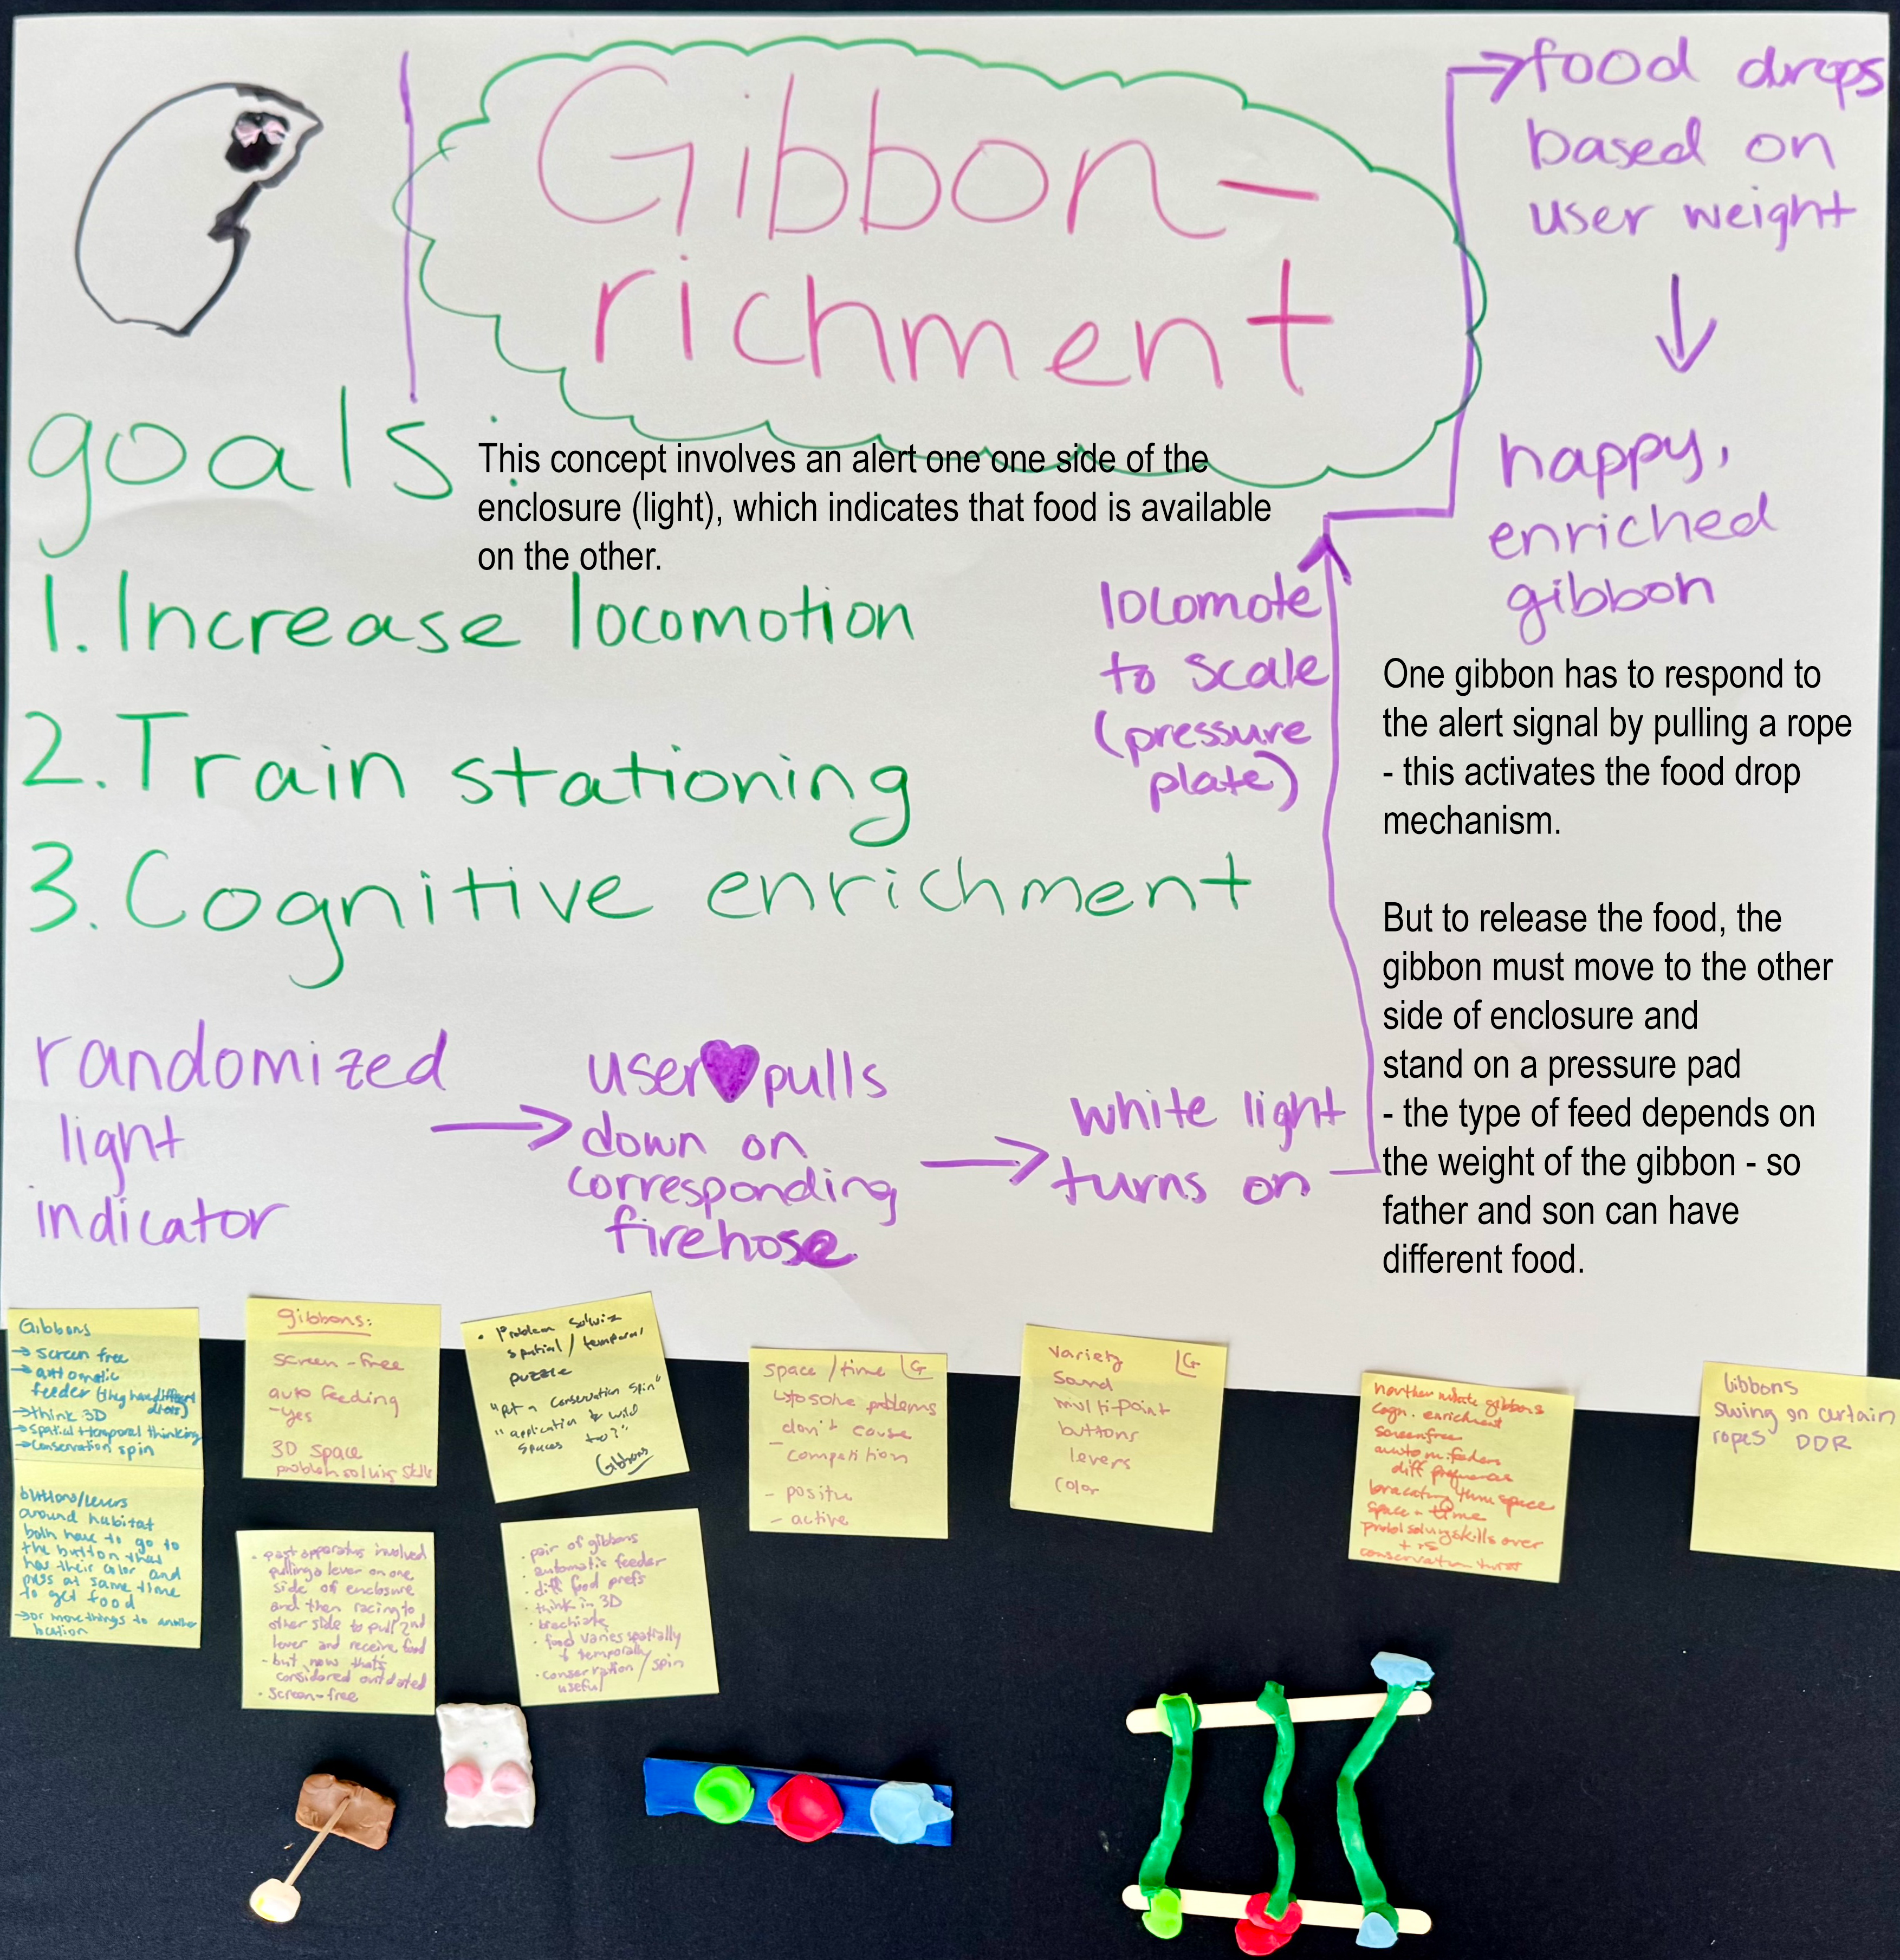 Gibbon-
richment
food drops
based on
user weight
happy,
enriched
gibbon
goals:
This concept involves an alert one one side of the
enclosure (light), which indicates that food is available
on the other.
1. Increase locomotion
2. Train stationing
3. Cognitive enrichment
locomote
to scale
(pressure
plate)
One gibbon has to respond to
the alert signal by pulling a rope
- this activates the food drop
mechanism.
But to release the food, the
gibbon must move to the other
side of enclosure and
stand on a pressure pad
- the type of feed depends on
the weight of the gibbon - so
father and son can have
different food.
randomized
light
indicator
user pulls
down on
corresponding
firehose
white light
turns on
Gibbons
→ screen free
→ automatic
feeder (they have different
diets)
→ think 3D
→ spatial + temporal thinking
→ conservation spin
gibbons:
screen-free
auto feeding
-yes
3D space
problem solving skills
• Problem solving
spatial / temporal
puzzle
"put a conservation spin"
"application to wild
spaces too?"
Gibbons
space/time LG
to solve problems
don't cause
competition
- positive
- active
variety LG
Sound
multi-point
buttons
levers
color
northern white gibbons
cogn. enrichment
screenfree
autom. feeders
diff
space + time
Gibbons
swing on certain
ropes DDR
buttons/levers
around habitat
both have to go to
the button that
has their color and
press at same time
to get food
→ or move things to another
location
• past apparatus involved
pulling a lever on one
side of enclosure
and then racing to
other side to pull 2nd
lever and receive food
- but now that's
considered outdated
• screen-free
• pair of gibbons
• automatic feeder
• diff food prefs
• think in 3D
• brachiate
• food varies spatially
+ temporally
• conservation/spin
useful